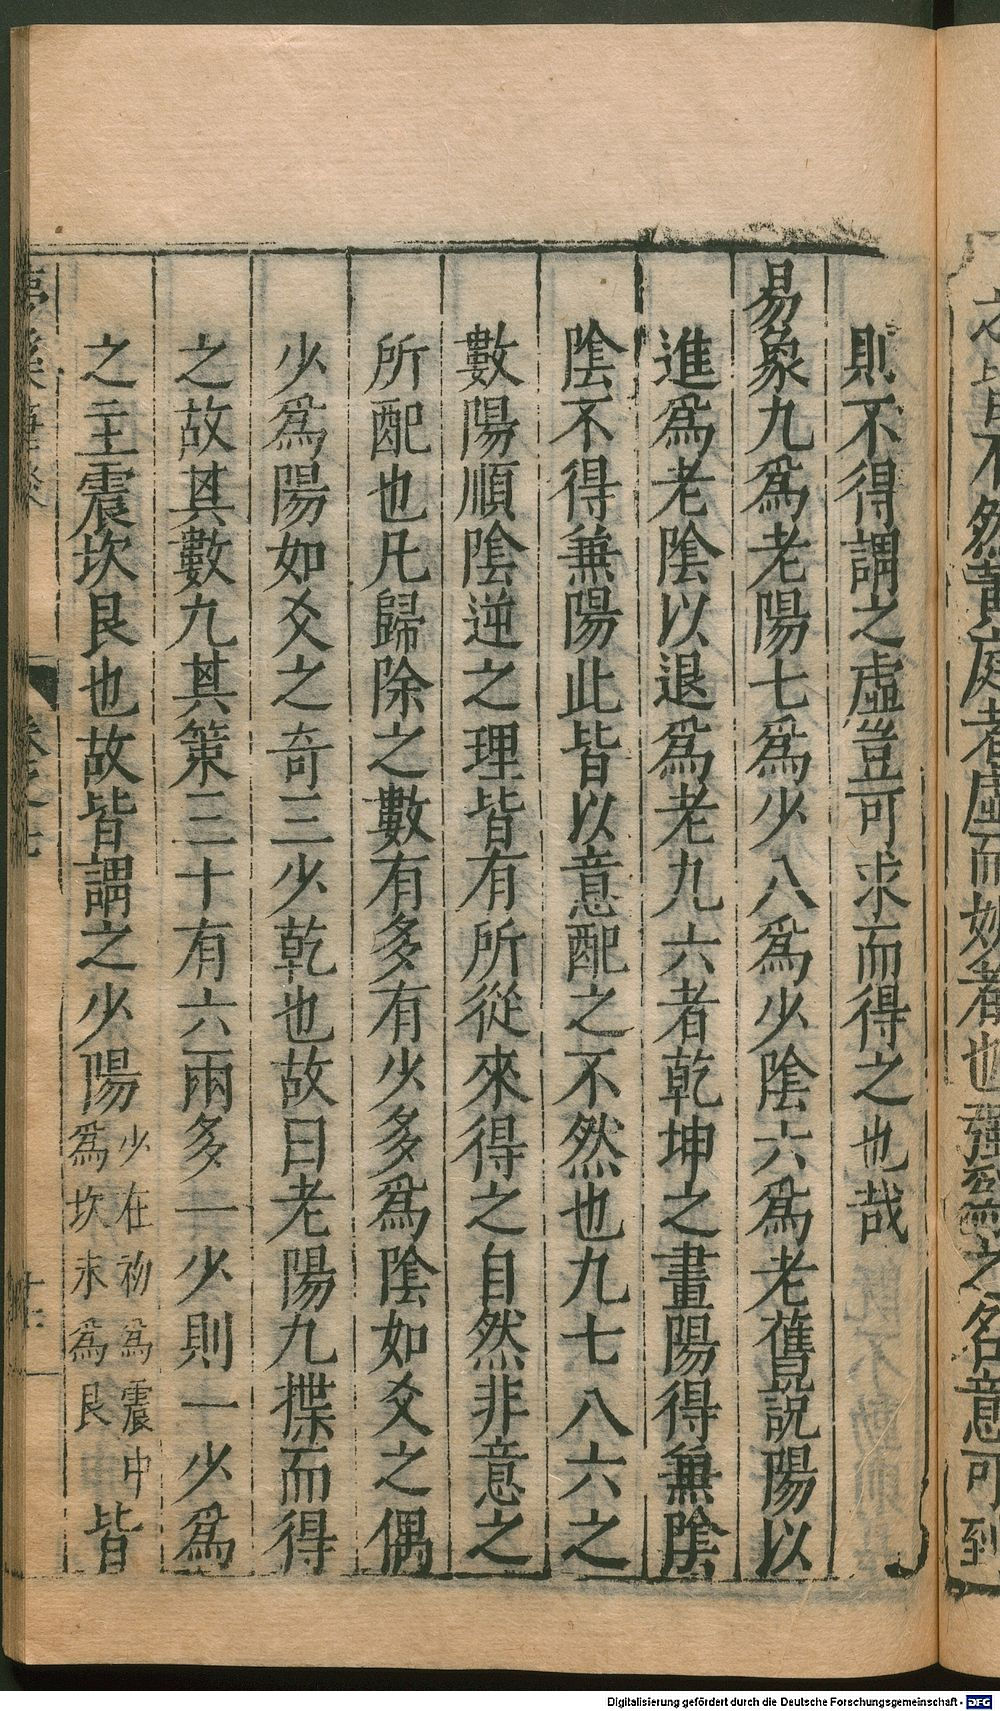 則不得謂之虛豈可求而得之也哉
易象九爲老陽七爲少八爲少陰六爲老舊說陽以
進爲老陰以退爲老九六者乾坤之畫陽得兼陰
陰不得兼陽此皆以意配之不然也九七八六之
數陽順陰逆之理皆有所從來得之自然非意之
所配也凡歸除之數有多有少多爲陰如爻之偶
少爲陽如爻之奇三少乾也故曰老陽九揲而得
之故其數九其策三十有六兩多一少則一少爲
之主震坎艮也故皆謂之少陽少在初爲震中爲坎末爲艮皆
夢溪筆談
卷之七
Digitalisierung gefördert durch die Deutsche Forschungsgemeinschaft - DFG